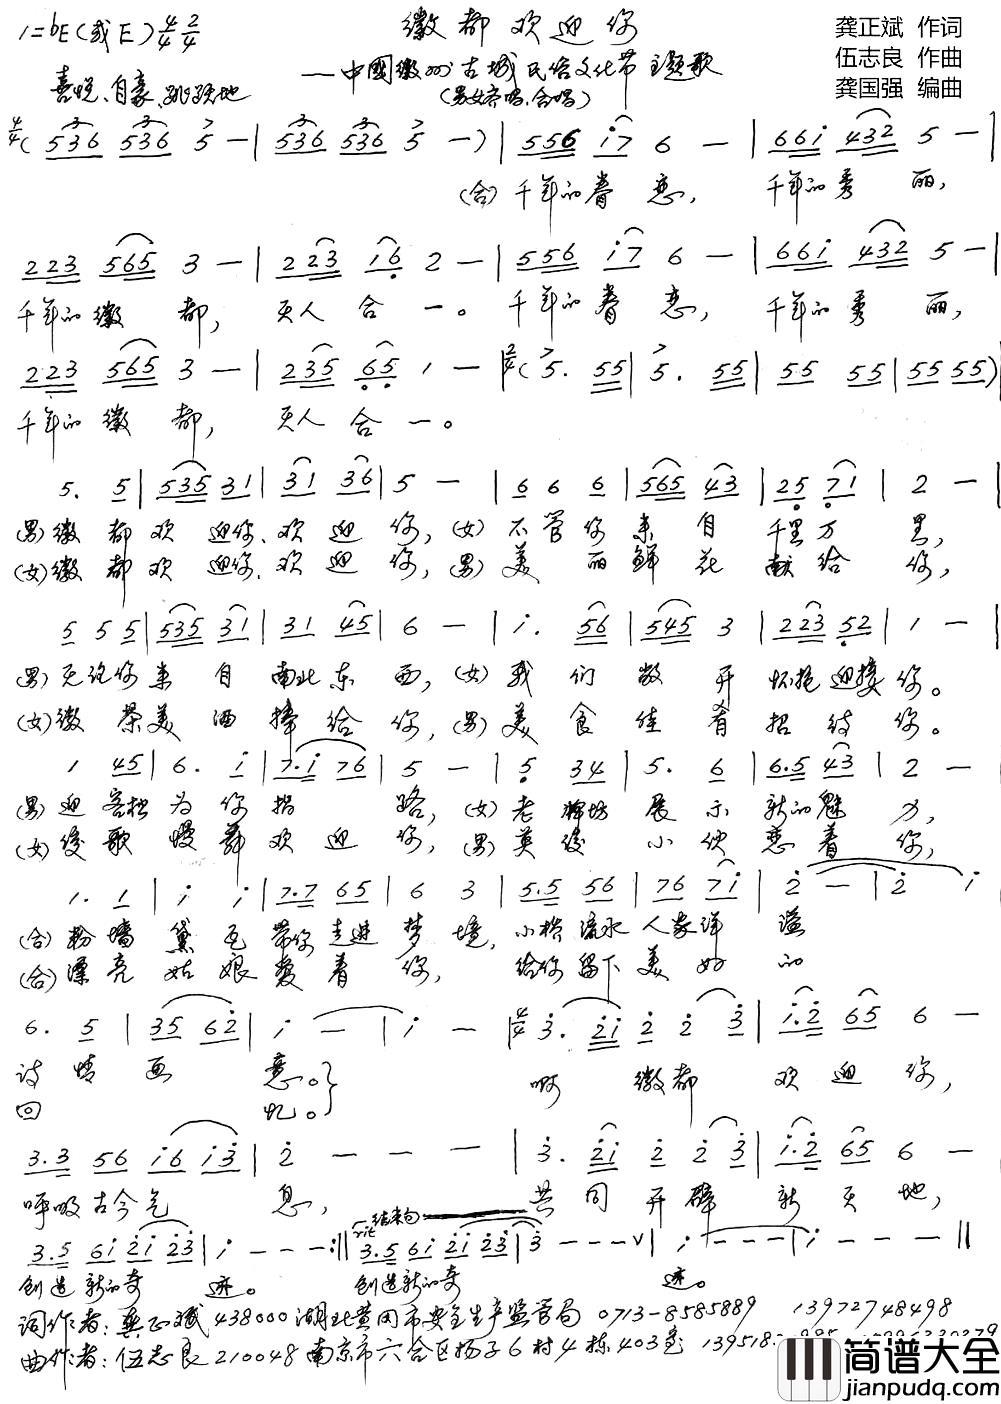 1=bE(或E)4/4 2/4
徽都欢迎你
龚正斌 作词
伍志良 作曲
龚国强 编曲
——中國徽州古城民俗文化节主题歌
(男女齐唱、合唱)
喜悦、自豪、跳跃地
4/4( 536 536 5 - | 536 536 5 - ) | 556 i7 6 - | 66i 432 5 - |
(合)千年的眷恋, 千年的秀丽,
223 565 3 - | 223 i6 2 - | 556 i7 6 - | 66i 432 5 - |
千年的徽都, 天人合一。 千年的眷恋, 千年的秀丽,
223 565 3 - | 235 65 1 - | 2/4( 5. 55 | 5. 55 | 55 55 | 55 55 )
千年的徽都, 天人合一。
5. 5 | 535 31 | 31 36 | 5 - | 6 6 6 | 565 43 | 25 71 | 2 - |
(男)徽都欢迎你、欢迎你, (女)不管你来自千里万里,
(女)徽都欢迎你、欢迎你, (男)美丽鲜花献给你,
5 5 5 | 535 31 | 31 45 | 6 - | i. 56 | 545 3 | 223 52 | 1 - |
(男)无论你来自南北东西, (女)我们敞开怀抱迎接你。
(女)徽茶美酒捧给你, (男)美食佳肴招待你。
1 45 | 6. i | 7.i 76 | 5 - | 5 34 | 5. 6 | 6.5 43 | 2 - |
(男)迎客松为你指路, (女)老牌坊展示新的魅力,
(女)缓歌慢舞欢迎你, (男)英俊小伙恋着你,
1. 1 | i i | 7.7 65 | 6 3 | 5.5 56 | 76 7i | 2 - | 2 i
(合)粉墙黛瓦带你走进梦境, 小桥流水人家洋溢
(合)漂亮姑娘爱着你, 给你留下美好的
6. 5 | 35 62 | i - | i - | 4/4 3. 2i 2 2 3 | i.2 65 6 - |
诗情画意。} 啊 徽都欢迎你,
回忆。}
3.3 56 i6 i3 | 2 - - - | 3. 2i 2 2 3 | i.2 65 6 - |
呼吸古今气息, 共同开辟新天地,
rit 结束句
3.5 6i 2i 23 | i - - - :|| 3.5 6i 2i 23 | 3 - - - v | i - - - | i - - - ||
创造新的奇迹。 创造新的奇迹。
词作者: 龚正斌 438000 湖北黄冈市安全生产监管局 0713-8585889 13972748498
曲作者: 伍志良 210048 南京市六合区扬子6村4栋403室
简谱大全
jianpudq.com